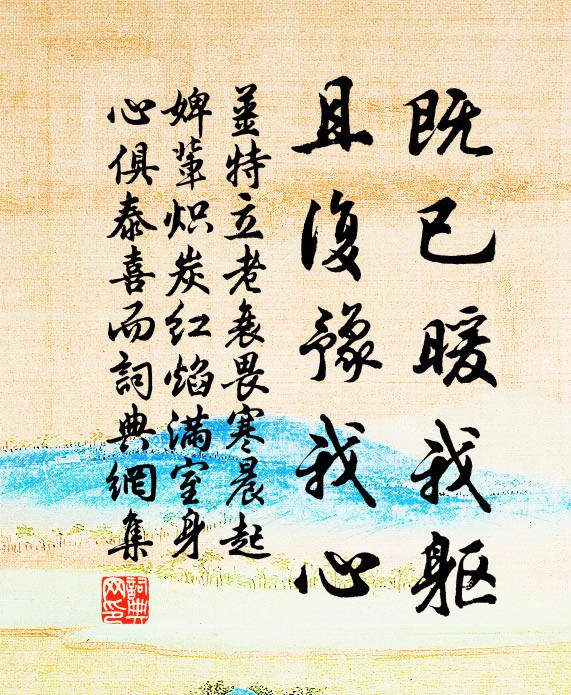 既已暖我軀
且復豫我心
姜特立老衰畏寒晨起
婢輩炽炭红焰满室身
心俱泰喜而詞典網集
詞典
网印